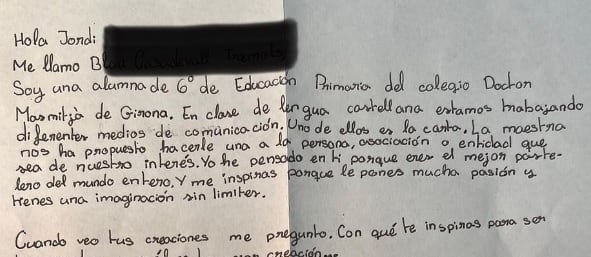 Hola Jordi:
Me llamo
Soy una alumna de 6º de Educación Primaria del colegio Doctor
Masmitjà de Girona. En clase de lengua castellana estamos trabajando
diferentes medios de comunicación. Uno de ellos es la carta. La maestra
nos ha propuesto hacerle una a la persona, asociación o entidad que
sea de nuestro interés. Yo he pensado en ti porque eres el mejor paste-
lero del mundo entero. Y me inspiras porque le pones mucha pasión y
tienes una imaginación sin limites.
Cuando veo tus creaciones me pregunto. Con qué te inspiras para ser